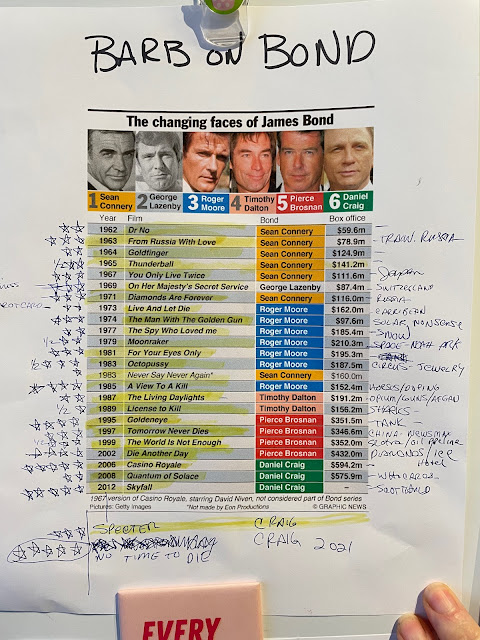 BARB ON BOND
The changing faces of James Bond
1 Sean Connery
2 George Lazenby
3 Roger Moore
4 Timothy Dalton
5 Pierce Brosnan
6 Daniel Craig
Year Film Bond Box office
1962 Dr No Sean Connery $59.6m
1963 From Russia With Love Sean Connery $78.9m - TRAIN. RUSSIA
1964 Goldfinger Sean Connery $124.9m
1965 Thunderball Sean Connery $141.2m
1967 You Only Live Twice Sean Connery $111.6m - Japan
1969 On Her Majesty's Secret Service George Lazenby $87.4m SWITZERLAND
1971 Diamonds Are Forever Sean Connery $116.0m
1973 Live And Let Die Roger Moore $162.0m
1974 The Man With The Golden Gun Roger Moore $97.6m SOLAR, NONSENSE
1977 The Spy Who Loved me Roger Moore $185.4m
1979 Moonraker Roger Moore $210.3m SPACE-NOAH ARK
1981 For Your Eyes Only Roger Moore $195.3m
1/2 1983 Octopussy Roger Moore $187.5m CIRCUS - JEWELRY
1983 Never Say Never Again* Sean Connery $160.0m
1985 A View To A Kill Roger Moore $152.4m HORSES/DOPING
1987 The Living Daylights Timothy Dalton $191.2m OPIUM/GUNS/AFGAN
1/2 1989 License to Kill Timothy Dalton $156.2m SHARKS -
1995 Goldeneye Pierce Brosnan $351.5m TANK -
1997 Tomorrow Never Dies Pierce Brosnan $346.6m CHINA
1999 The World Is Not Enough Pierce Brosnan $352.0m OIL PIPELINE
2002 Die Another Day Pierce Brosnan $432.0m DIAMONDS/ICE HOTEL
2006 Casino Royale Daniel Craig $594.2m
2008 Quantum of Solace Daniel Craig $575.9m
2012 Skyfall Daniel Craig - SCOTLAND
1967 version of Casino Royale, starring David Niven, not considered part of Bond series
Pictures: Getty Images *Not made by Eon Productions © GRAPHIC NEWS
SPECTER CRAIG
NO TIME TO DIE CRAIG 2021
EVERY